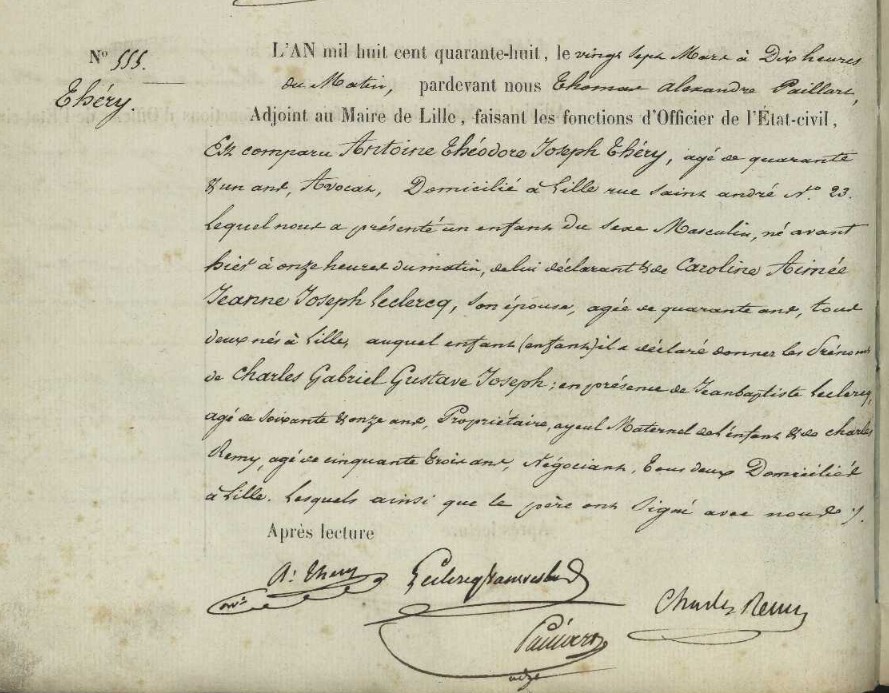 N° 555.
Théry.
L'AN mil huit cent quarante-huit, le vingt sept Mars à Dix heures
du Matin, pardevant nous Thomas Alexandre Paillart,
Adjoint au Maire de Lille, faisant les fonctions d'Officier de l'État-civil,
Est comparu Antoine Théodore Joseph Théry, agé de quarante
& un ans, Avocat, Domicilié à Lille rue Saint andré N° 23.
Lequel nous a présenté un enfant du sexe Masculin, né avant
hier à onze heures du matin, de lui déclarant & de Caroline Aimée
Jeanne Joseph Leclercq, son épouse, agée de quarante ans, tous
deux nés à Lille, auquel enfant (enfant) il a déclaré donner les Prénoms
de Charles Gabriel Gustave Joseph; en présence de Jeanbaptiste Leclercq,
agé de soixante & onze ans, Propriétaire, ayeul Maternel de l'enfant & de Charles
Remy, agé de cinquante trois ans, Négociant, Tous deux Domiciliés
à Lille. Lesquels ainsi que le père ont signé avec nous ⁒
Après lecture
A: Théry
avt
Leclercq
Charles Remy